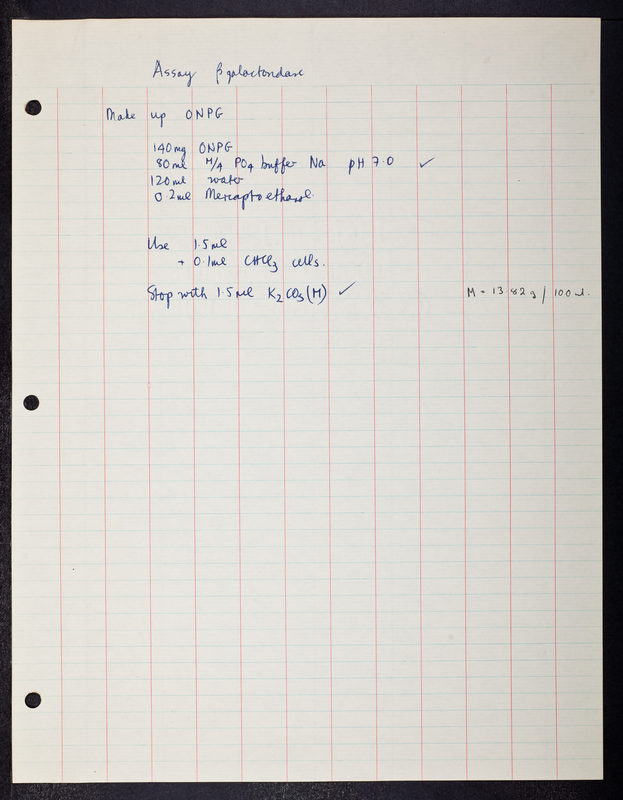 Assay β galactosidase
Make up ONPG
140mg ONPG
80ml M/4 PO4 buffer Na pH 7.0 ✓
120ml water
0.2ml Mercaptoethanol.
Use 1.5ml
+ 0.1ml CHCl3 cells.
Stop with 1.5ml K2CO3 (M) ✓ M = 13.82g / 100ml.